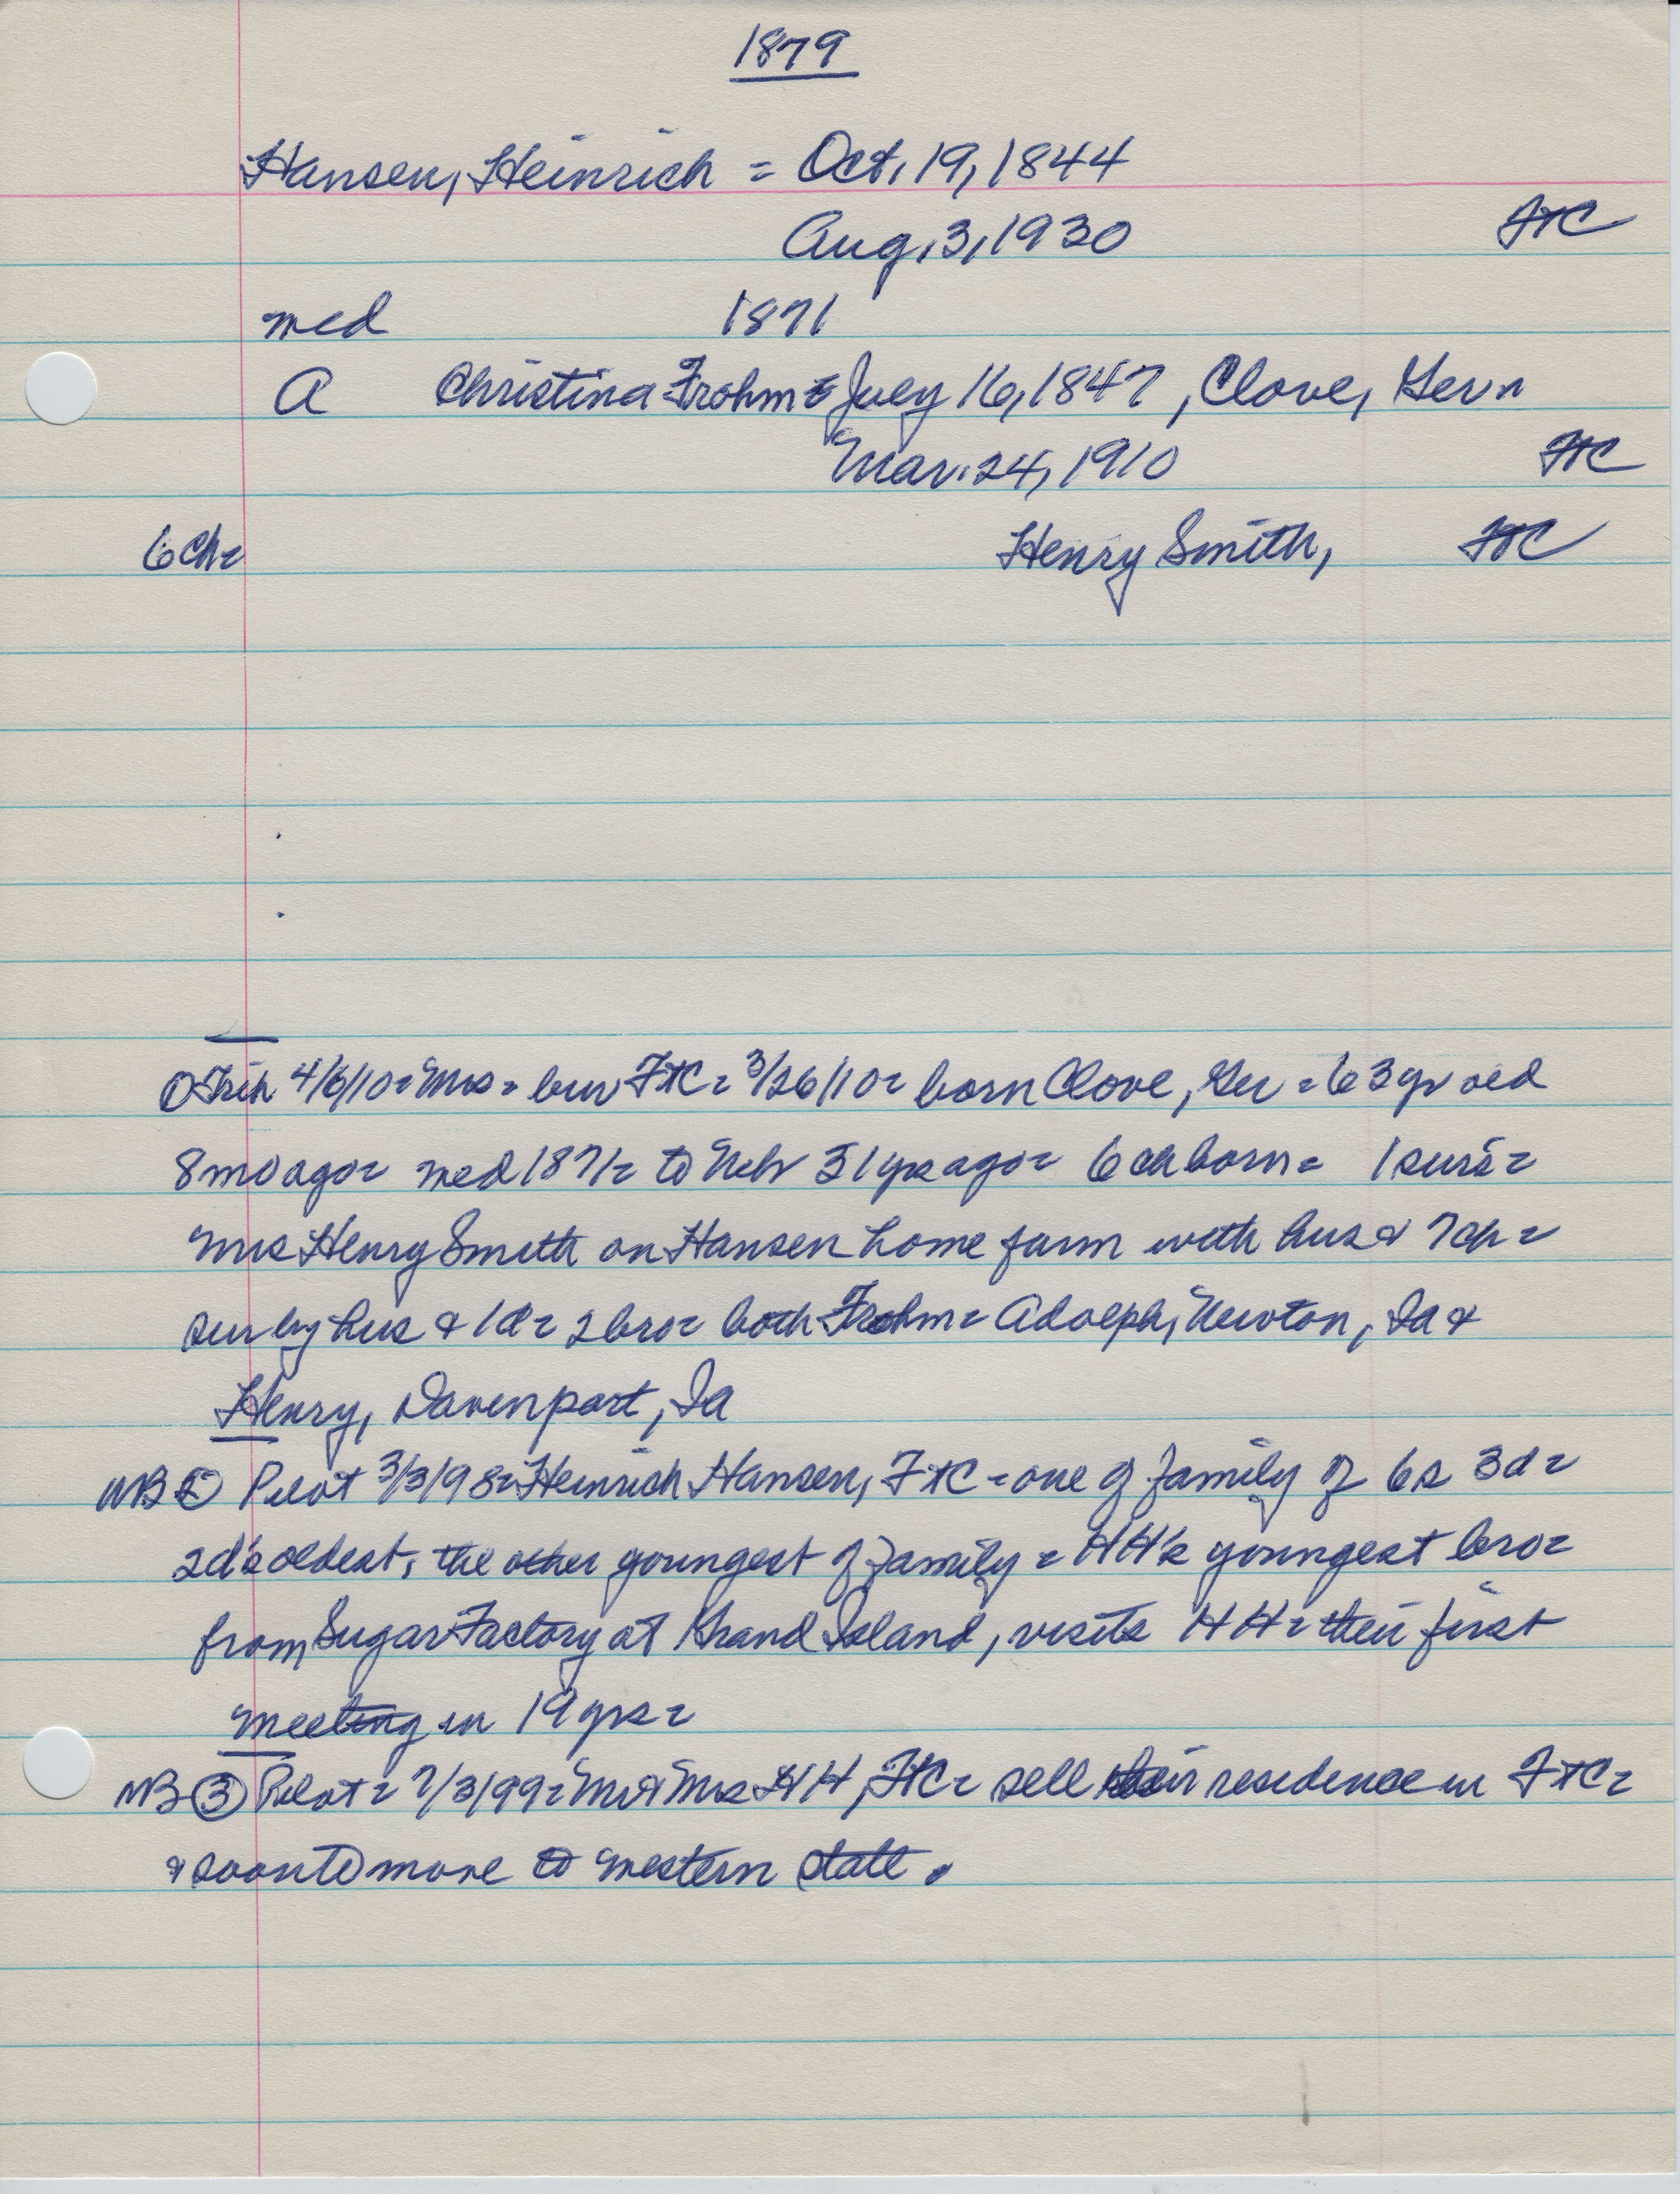 1879
Hansen, Heinrich = Oct. 19, 1844
Aug. 3, 1930 FtC
med 1871
a Christina Frohm = July 16, 1847, Clove, Gern
Mar. 24, 1910 FtC
6 Ch = Henry Smith, FtC
① Trib 4/6/10 = Mrs = bur FtC = 3/26/10 = born Clove, Ger = 63 yr old
8 mo ago = med 1871 = to Nebr 31 yrs ago = 6 ch born = 1 survs =
Mrs Henry Smith on Hansen home farm with hus & 7 ch =
sur by hus & 1 d = 2 bro = both Frohm = Adolph, Newton, Ia &
Henry, Davenport, Ia
NB ② Pilot 3/3/98 = Heinrich Hansen, FtC = one of family of 6 s 3 d =
2 d's oldest, the other youngest of family = HH's youngest bro =
from Sugar Factory at Grand Island, visits HH = their first
meeting in 19 yrs =
NB ③ Pilot = 7/3/99 = Mr & Mrs HH, FtC = sell their residence in FtC =
& soon to move to western state.